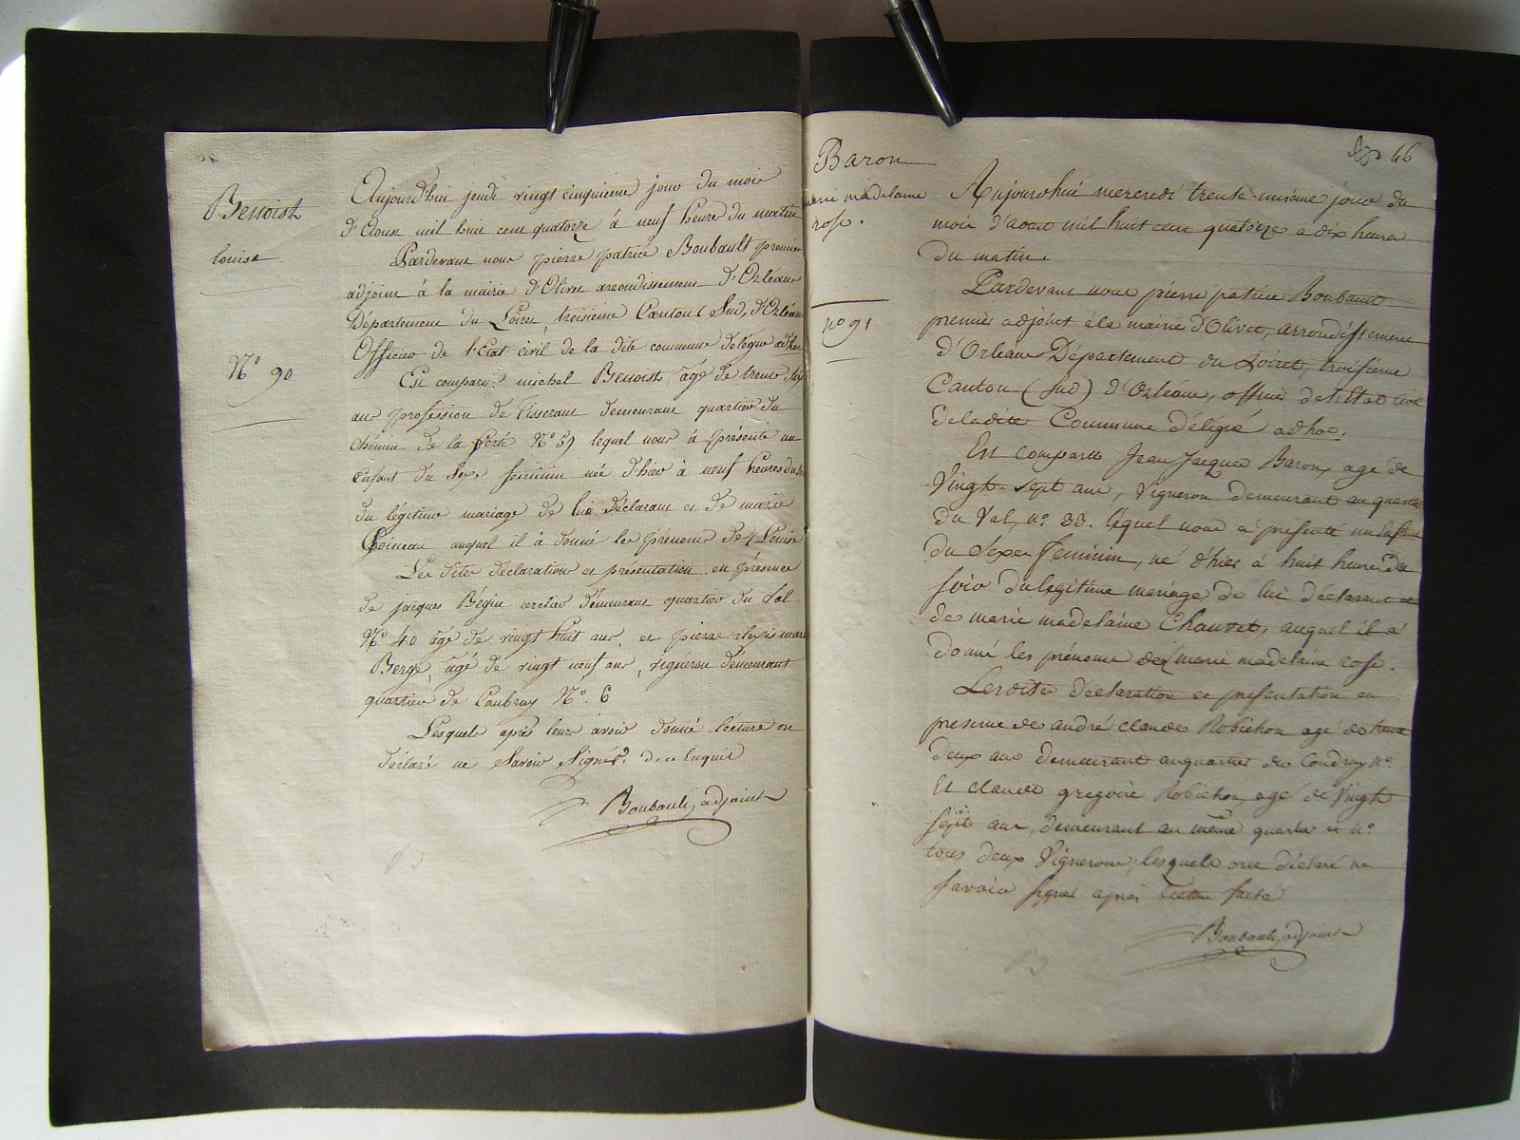 Benoist
louise
N.º 90
Aujourd'hui jeudi vingt cinquieme jour du mois
d'Aoust mil huit cent quatorze à neuf heure du matin
Pardevant nous pierre patrice Boubault premier
adjoint à la mairie d'Olivet arrondissement d'Orléans
Département du Loiret, troisieme Canton (Sud) d'Orléans
Officier de l'Etat civil de la dite commune délégué ad hoc
Est comparu michel Benoist âgé de trente six
ans profession de tisserant demeurant quartier du
chemin de la ferté N.º 59 lequel nous à présenté un
Enfant du Sexe féminin né d'hier à neuf heures du
du légitime mariage de lui Déclarant et de marie
Coineau auquel il à donné les prénoms de Louise
Les dites déclaration et présentation en présence
de jacques Bégin demeurant quartier du Val
N.º 40 âgé de vingt huit ans, et pierre alexis
Berge, âgé de vingt neuf ans, vigneron demeurant
quartier de Caubray N.º 6
Lesquels après leur avoir donné lecture ont
déclaré ne Savoir Signér de ce Enquis
Boubault, adjoint
46
Baron
marie madelaine
rose.
nº 91
Aujourdhui mercredi trente-unième jour du
mois d'aout mil huit cent quatorze a dix heures
du matin.
Pardevant nous pierre patrice Boubault
premier adjoint à la mairie d'Olivet, arrondissement
d'Orleans Département du Loiret, troisieme
Canton (sud) d'Orléans, officier de l'Etat civil
de ladite Commune délégué ad hoc.
Est comparu Jean Jacques Baron, age de
Vingt-sept ans, Vigneron demeurant au quartier
du Val, nº 33. lequel nous a presenté un enfant
du Sexe féminin, né d'hier à huit heures du
soir du legitime mariage de lui déclarant et
de marie madelaine Chauvet, auquel il a
donné les prénoms de marie madelaine rose.
Lesdites déclaration et presentation en
presence de andré claude Robichon agé de trente
deux ans demeurant au quartier du Coudray nº
Et claude gregoire Robichon, agé de Vingt
sept ans, demeurant au même quartier et nº
tous deux Vignerons, lesquels ont déclaré ne
savoir signer après lecture faite
Boubault, adjoint